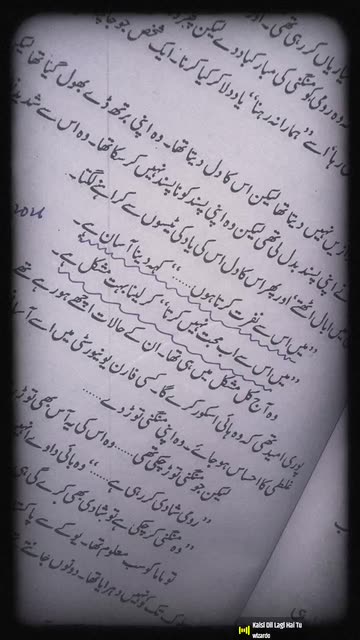 تیاریاں کر رہی تھی۔ اور
وہ روی کو منگنی کی مبارکباد دے لیکن پھر وہ
رہا اسے ”ہمارا نہ رہنا“ یاد دلا کر کیا کرنا۔ ایک شخص جو جا چکا
نہیں دیتا تھا لیکن اس کا دل دیتا تھا۔ وہ اپنی برتھ ڈے بھول گیا تھا لیکن
نے اپنی پسند بدل لی تھی لیکن وہ اپنی پسند کو ناپسند نہیں کر سکا تھا۔ وہ اس سے شدید
میں ابال اٹھتے اور پھر اس کا دل اس کی یاد کی ٹیسوں سے کراہنے لگتا۔
”میں اس سے نفرت کرتا ہوں.....“ کہہ دینا آسان ہے۔
”میں اس سے اب محبت نہیں کرتا“ کر لینا بہت مشکل ہے۔
وہ آج کل مشکل میں ہی تھا۔ ان کے حالات اچھے ہو رہے تھے
پوری امید تھی کہ وہ ہائی اسکور کرے گا۔ کسی فارن یونیورسٹی میں اسے آسا
غلطی کا احساس ہو جائے۔ وہ اپنی منگنی توڑ دے.......
لیکن جو منگنی توڑ چکی تھی..... وہ اس کی یہ آس بھی توڑ
”روی شادی کر رہی ہے.....“ وہ ہائی داوے
”وہ منگنی کر چکی ہے تو شادی بھی کرے گی ہی
تو ماما کو سب معلوم تھا۔ یو کے سے
نہیں دہرایا تھا۔ دونوں جانتے
Kaisi Dil Lagi Hai Tu
wizardo